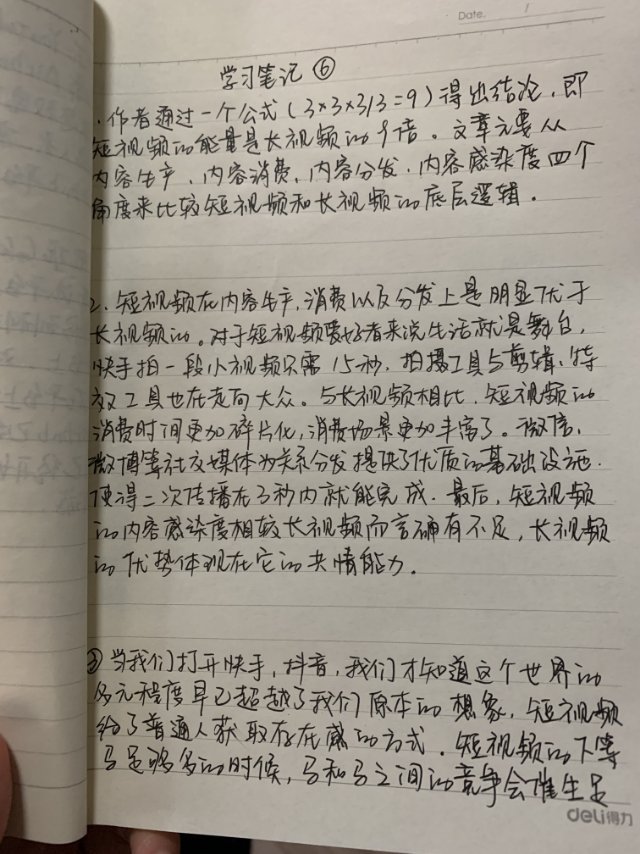 Date. /
学习笔记 ⑥
1. 作者通过一个公式(3×3×3/3=9)得出结论,即
短视频的能量是长视频的9倍。文章主要从
内容生产、内容消费、内容分发、内容感染度四个
角度来比较短视频和长视频的底层逻辑。
2. 短视频在内容生产,消费以及分发上是明显优于
长视频的。对于短视频爱好者来说生活就是舞台,
快手拍一段小视频只需15秒,拍摄工具与剪辑、特
效工具也在走向大众。与长视频相比,短视频的
消费时间更加碎片化,消费场景更加丰富了。微信、
微博等社交媒体为关系分发提供了优质的基础设施.
使得二次传播在3秒内就能完成.最后,短视频
的内容感染度相较长视频而言确有不足,长视频
的优势体现在它的共情能力.
③ 当我们打开快手,抖音,我们才知道这个世界的
多元程度早已超越了我们原本的想象,短视频
给了普通人获取存在感的方式.短视频的下等
马足够多的时候,马和马之间的竞争会催生足
deli得力